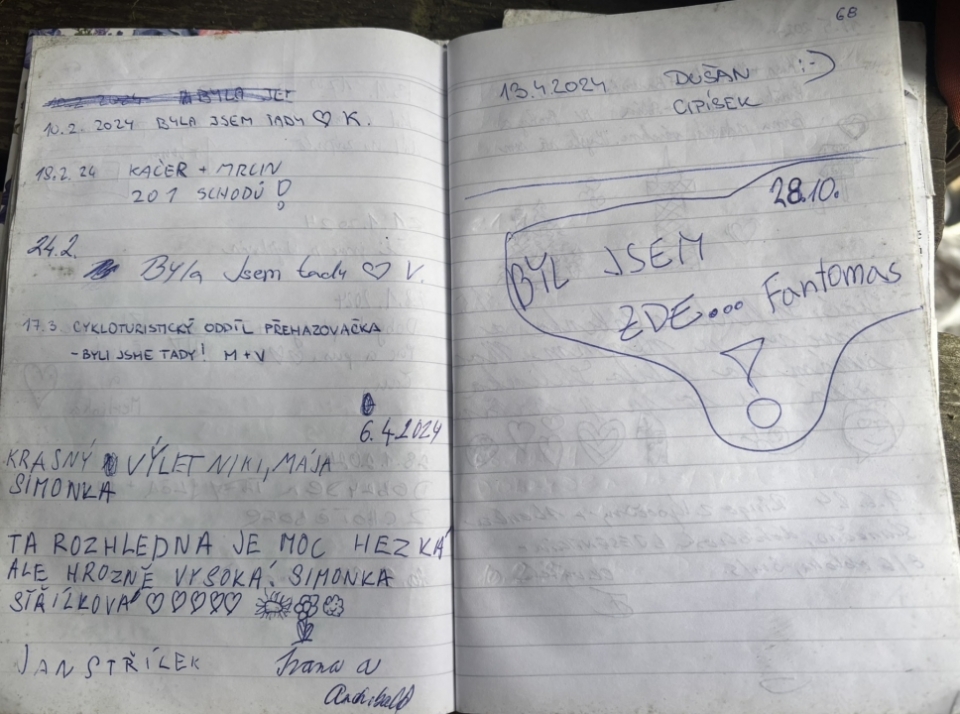 10.2. 2024 BYLA JSEM TADY ♡ K.
18.2. 24 KAČER + MRLIN
201 SCHODŮ!
24.2.
Byla Jsem tady ♡ V.
17.3. CYKLOTURISTICKÝ ODDÍL PŘEHAZOVAČKA
- BYLI JSME TADY! M + V
6.4.2024
KRASNÝ VÝLET NIKI, MÁJA
SIMONKA
TA ROZHLEDNA JE MOC HEZKÁ
ALE HROZNĚ VYSOKÁ. SIMONKA
STŘÍLKOVÁ ♡♡♡♡♡
JAN STŘÍLEK
Ivana a
Archibald
68
13.4.2024 DUŠAN :-)
CIPÍSEK
28.10.
BYL JSEM
ZDE... Fantomas
!